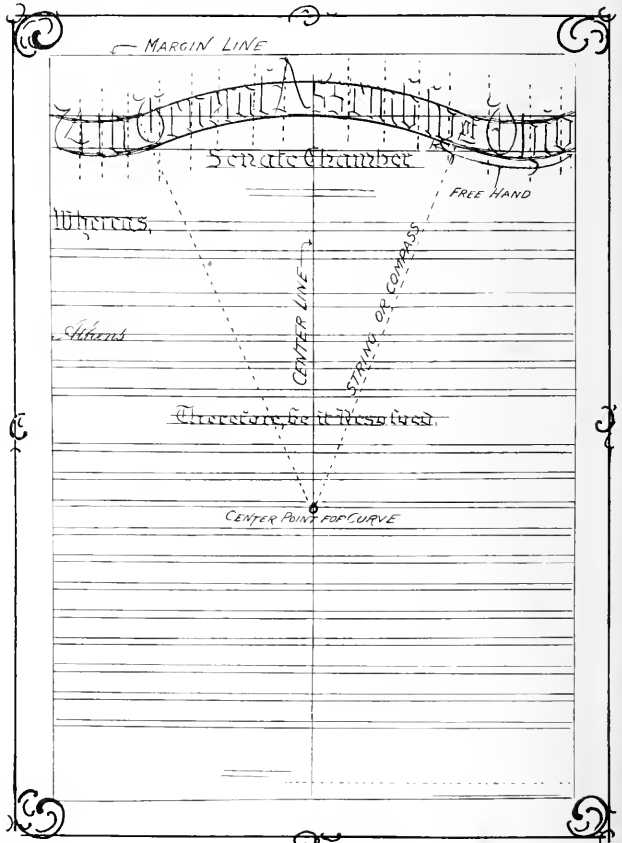 MARGIN LINE
General Assembly of Ohio
Senate Chamber
FREE HAND
Whereas,
CENTER LINE
STRING OR COMPASS
Athens
Therefore, be it Resolved,
CENTER POINT FOR CURVE